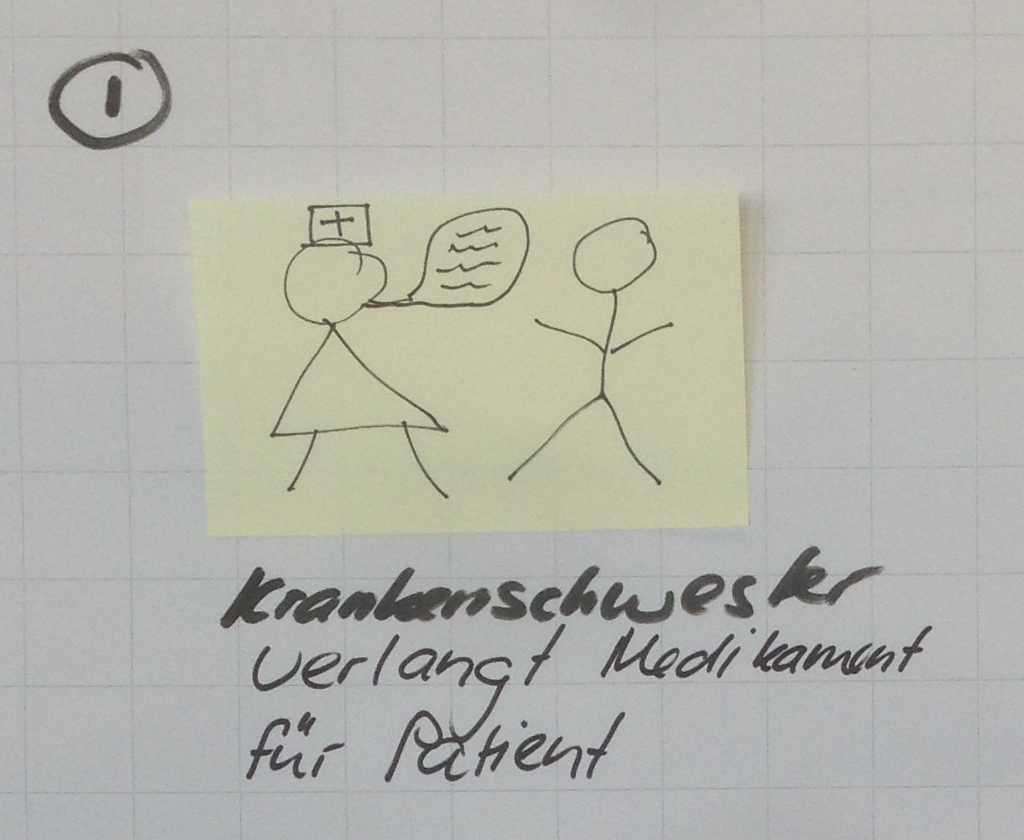 1
Krankenschwester
verlangt Medikament
für Patient